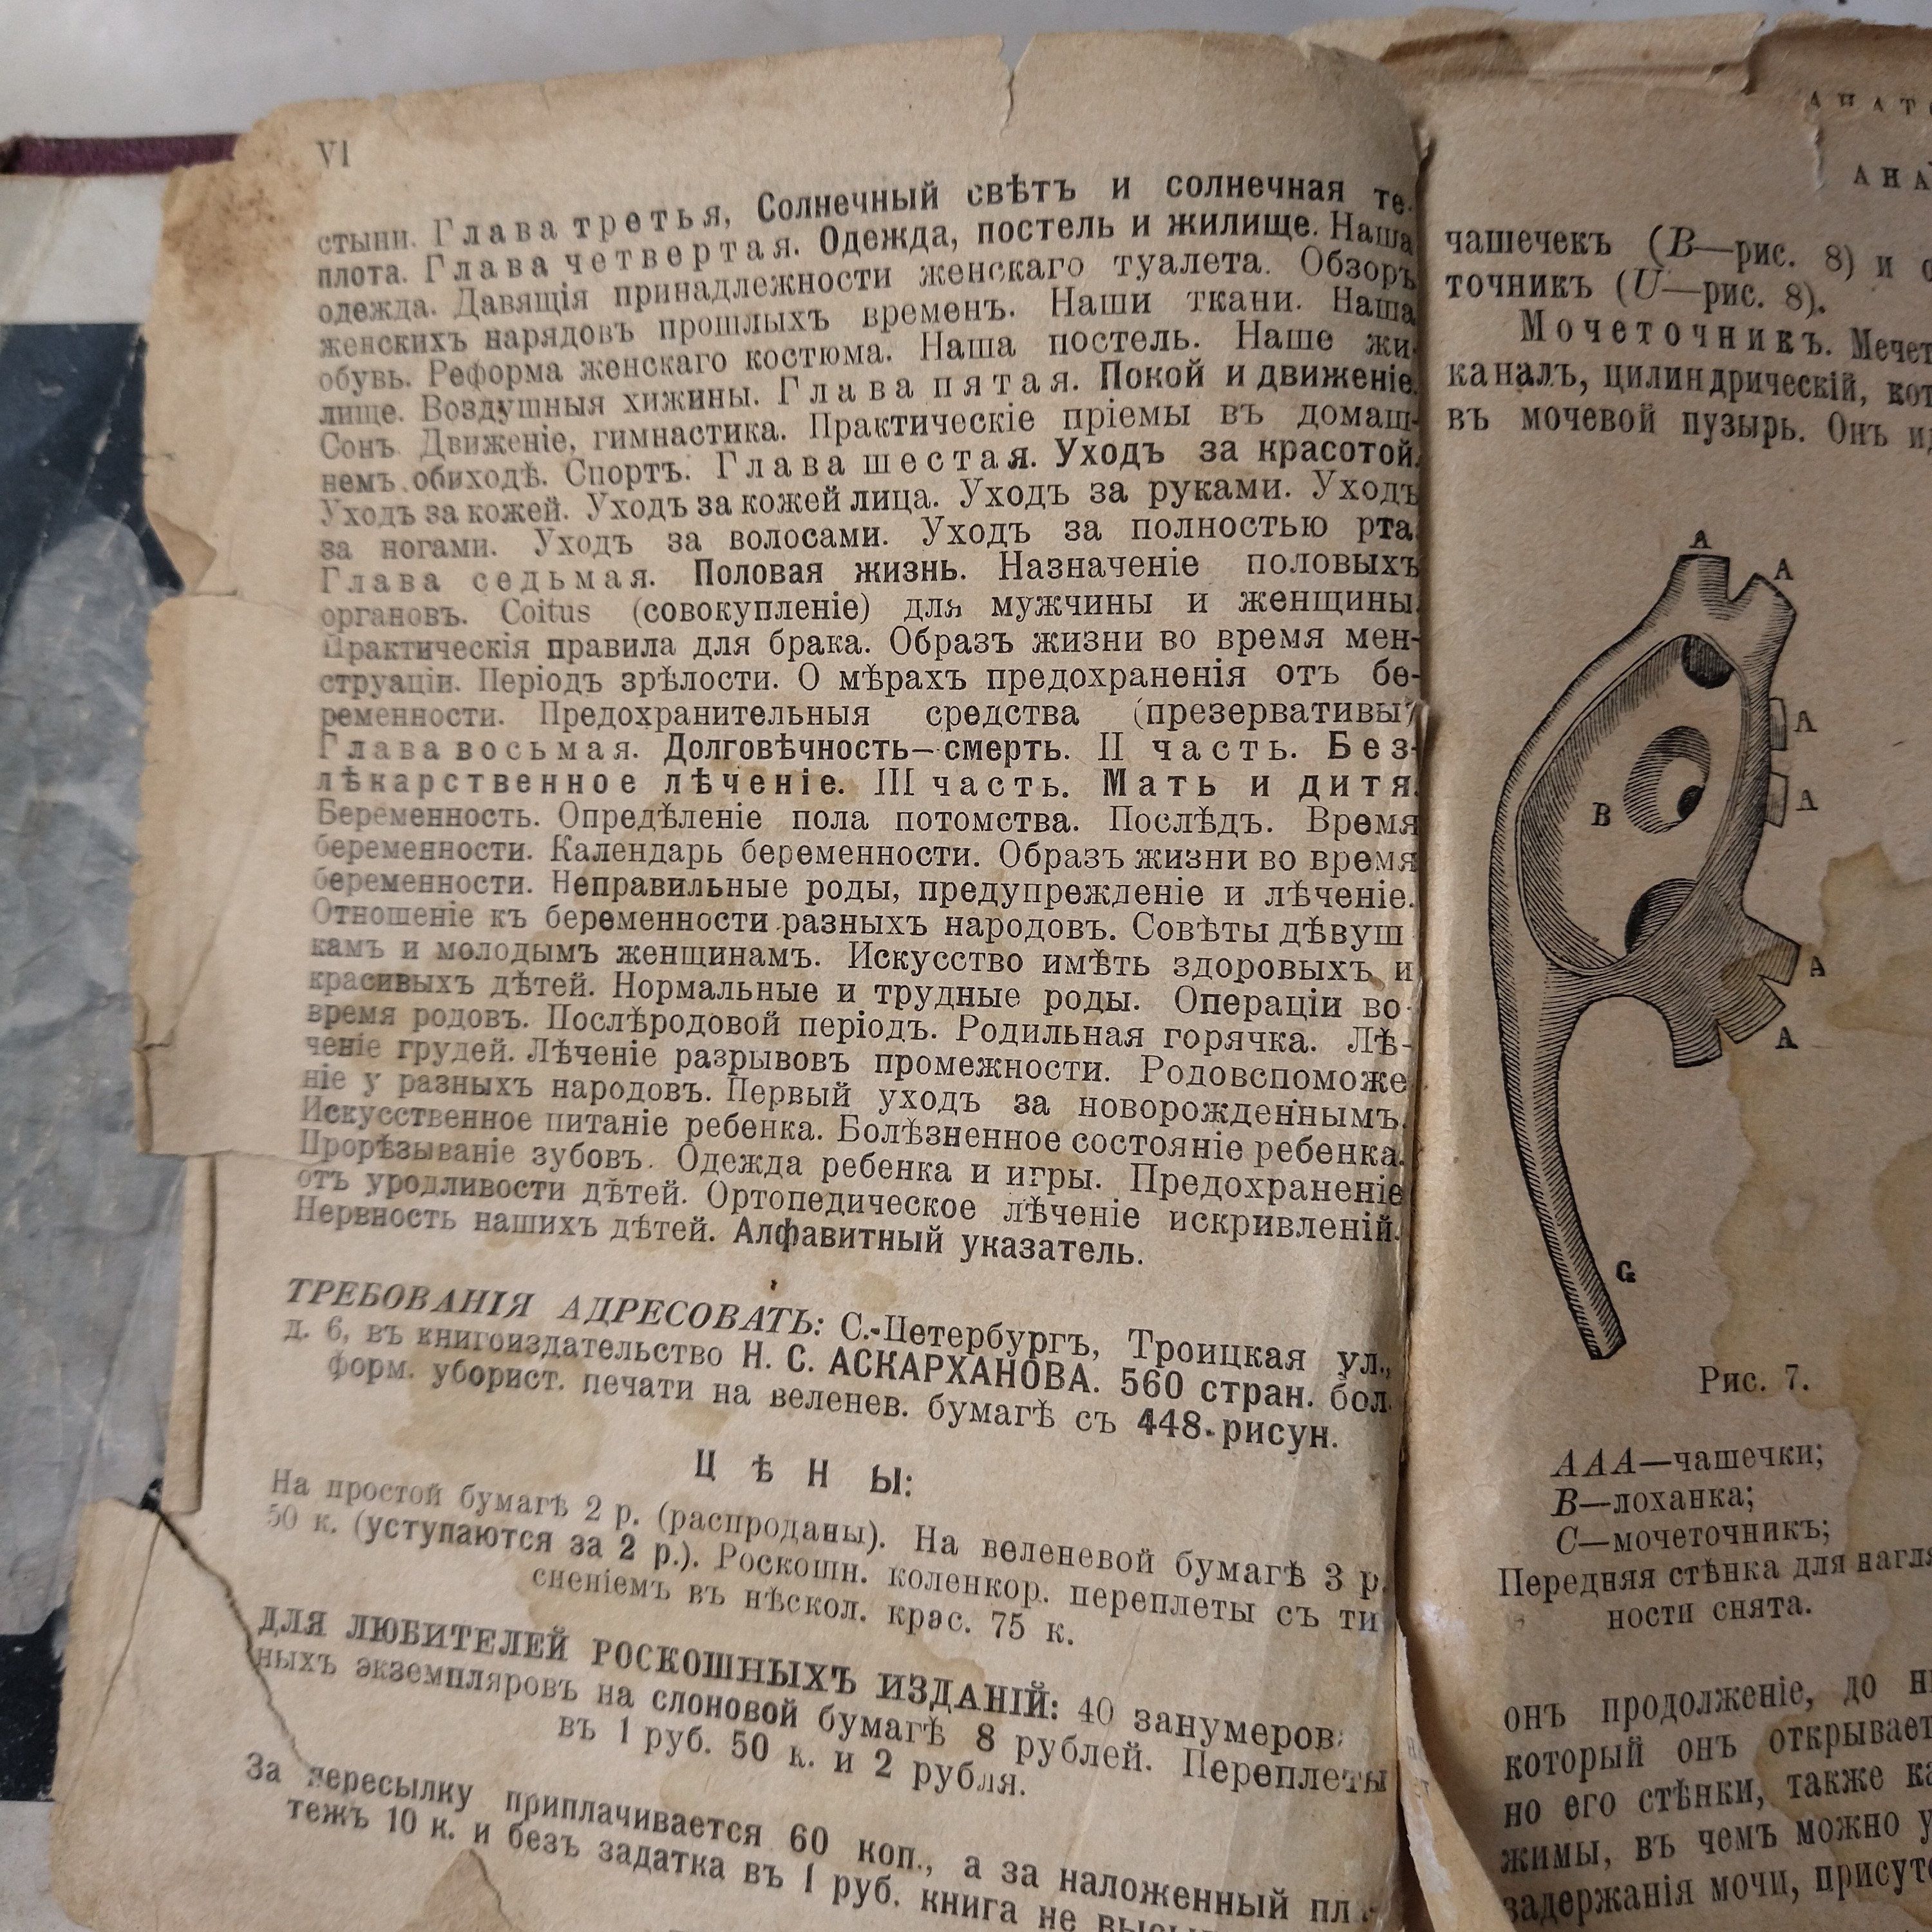 VI
стыни. Глава третья, Солнечный свѣтъ и солнечная те-
плота. Глава четвертая. Одежда, постель и жилище. Наша
одежда. Давящія принадлежности женскаго туалета. Обзоръ
женскихъ нарядовъ прошлыхъ временъ. Наши ткани. Наша
обувь. Реформа женскаго костюма. Наша постель. Наше жи-
лище. Воздушныя хижины. Глава пятая. Покой и движеніе.
Сонъ. Движеніе, гимнастика. Практическіе пріемы въ домаш-
немъ обиходѣ. Спортъ. Глава шестая. Уходъ за красотой.
Уходъ за кожей. Уходъ за кожей лица. Уходъ за руками. Уходъ
за ногами. Уходъ за волосами. Уходъ за полностью рта.
Глава седьмая. Половая жизнь. Назначеніе половыхъ
органовъ. Coitus (совокупленіе) для мужчины и женщины.
Практическія правила для брака. Образъ жизни во время мен-
струаціи. Періодъ зрѣлости. О мѣрахъ предохраненія отъ бе-
ременности. Предохранительныя средства (презервативы)
Глава восьмая. Долговѣчность—смерть. II часть. Без-
лѣкарственное лѣченіе. III часть. Мать и дитя.
Беременность. Опредѣленіе пола потомства. Послѣдъ. Время
беременности. Календарь беременности. Образъ жизни во время
беременности. Неправильные роды, предупрежденіе и лѣченіе.
Отношеніе къ беременности разныхъ народовъ. Совѣты дѣвуш
камъ и молодымъ женщинамъ. Искусство имѣть здоровыхъ и
красивыхъ дѣтей. Нормальные и трудные роды. Операціи во
время родовъ. Послѣродовой періодъ. Родильная горячка. Лѣ-
ченіе грудей. Лѣченіе разрывовъ промежности. Родовспоможе
ніе у разныхъ народовъ. Первый уходъ за новорожденнымъ.
Искусственное питаніе ребенка. Болѣзненное состояніе ребенка.
Прорѣзываніе зубовъ. Одежда ребенка и игры. Предохраненіе
отъ уродливости дѣтей. Ортопедическое лѣченіе искривленій.
Нервность нашихъ дѣтей. Алфавитный указатель.
ТРЕБОВАНІЯ АДРЕСОВАТЬ: С.-Петербургъ, Троицкая ул.,
д. 6, въ книгоиздательство Н. С. АСКАРХАНОВА. 560 стран. бол.
форм. уборист. печати на веленев. бумагѣ съ 448 рисун.
ЦѢНЫ:
На простой бумагѣ 2 р. (распроданы). На веленевой бумагѣ 3 р.
50 к. (уступаются за 2 р.). Роскошн. коленкор. переплеты съ ти
сненіемъ въ нѣскол. крас. 75 к.
ДЛЯ ЛЮБИТЕЛЕЙ РОСКОШНЫХЪ ИЗДАНІЙ: 40 занумеров
ныхъ экземпляровъ на слоновой бумагѣ 8 рублей. Переплеты
въ 1 руб. 50 к. и 2 рубля.
За пересылку приплачивается 60 коп., а за наложенный пла-
тежъ 10 к. и безъ задатка въ 1 руб. книга не
АНАТ
АНА
чашечекъ (В—рис. 8) и
точникъ (U—рис. 8).
Мочеточникъ. Мечет
каналъ, цилиндрическій, кот
въ мочевой пузырь. Онъ
A
A
A
A
B
A
A
G
Рис. 7.
ААА—чашечки;
В—лоханка;
С—мочеточникъ;
Передняя стѣнка для нагля
ности снята.
онъ продолженіе, до
который онъ открывает
но его стѣнки, также ка
жимы, въ чемъ можно у
задержанія мочи, присут